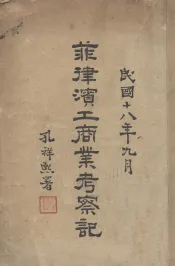 民國十八年九月
菲律濱工商業考察記
孔祥熙署